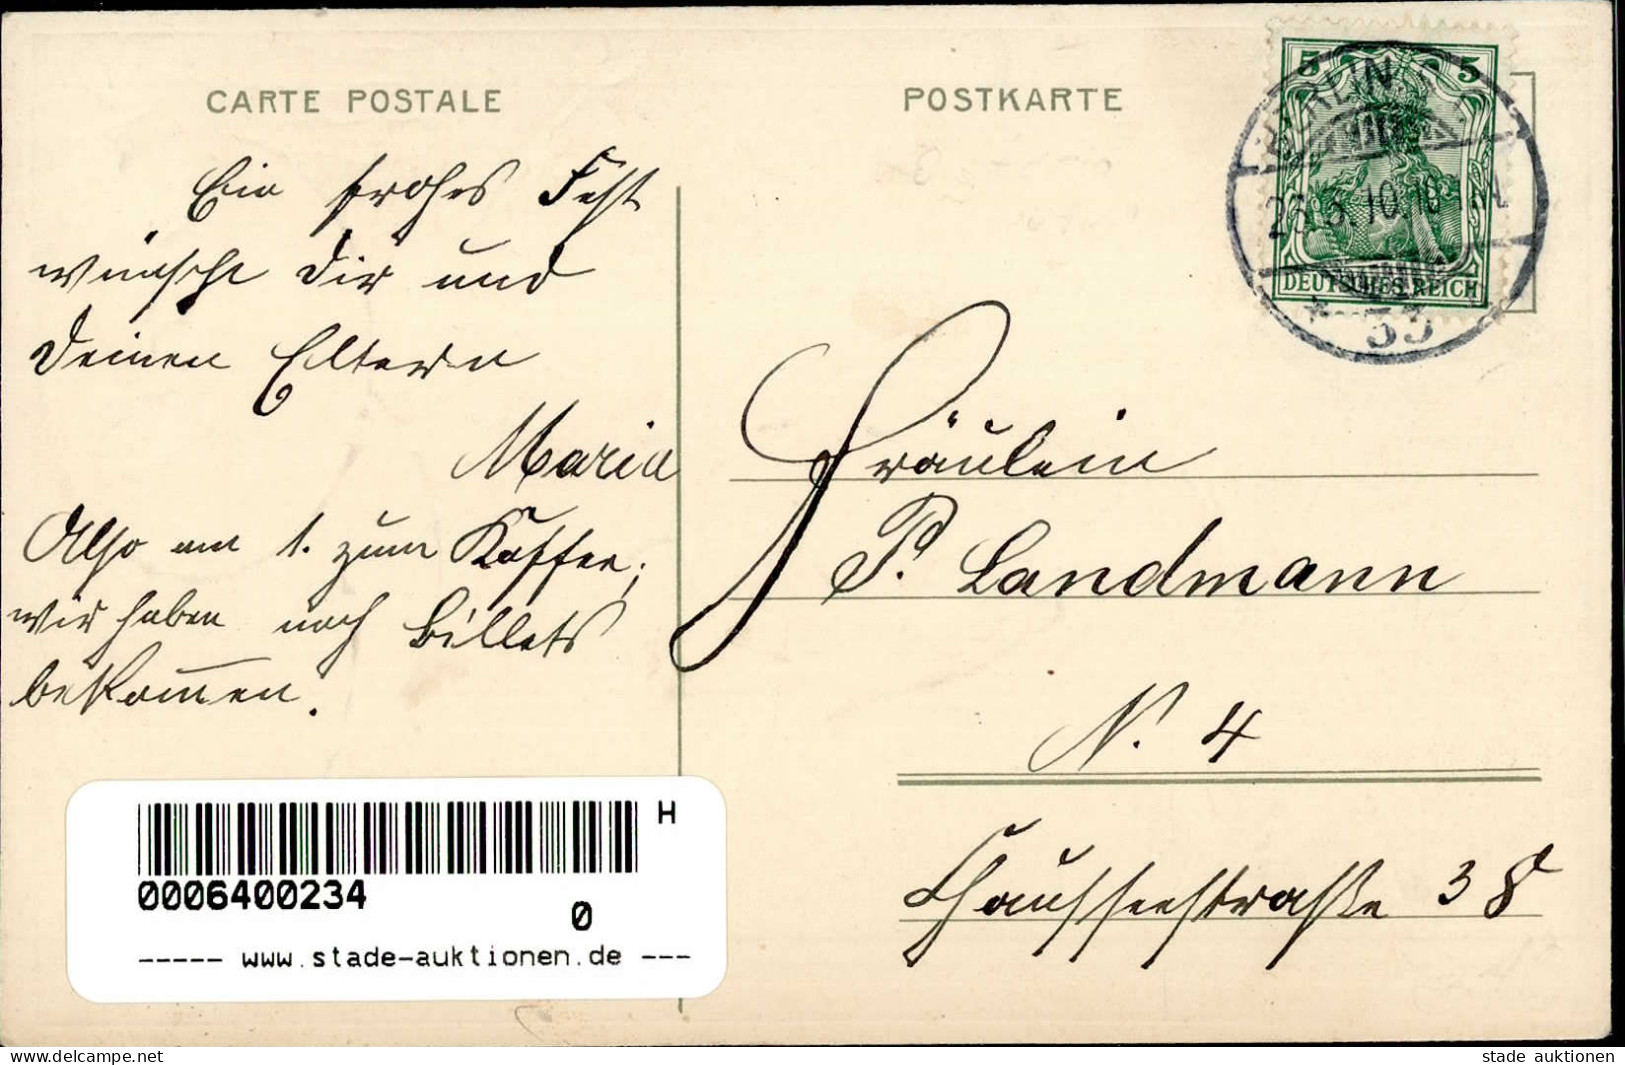 CARTE POSTALE
POSTKARTE
5 5
BERLIN
DEUTSCHES REICH
* 33
Ein frohes Fest
wünscht Dir und
Deinen Eltern
Maria
Also am 1. zum Kaffee;
wir haben noch Billets
bekommen.
Fräulein
P. Landmann
N. 4
Chausseestraße 38
H
0006400234
0
----- www.stade-auktionen.de ---
www.delcampe.net
stade auktionen